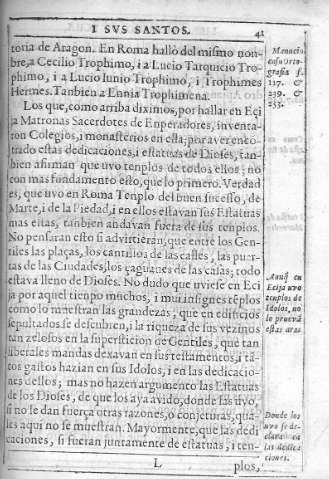 I SVS SANTOS. 42
toria de Aragon. En Roma hallò del mismo non-
bre, a Cecilio Trophimo, i a Lucio Tarquicio Tro-
phimo, i a Lucio Iunio Trophimo, i Trophimes
Hermes. Tanbien a Ennia Trophimena.
Los que, como arriba diximos, por hallar en Eci
ja Matronas Sacerdotes de Enperadores, inventa-
ron Colegios, i monasterios en esta; por aver encõ-
trado estas dedicaciones, i estatuas de Dioses, tan-
bien afirman que uvo tenplos de todos ellos; no
con mas fundamento esto, que lo primero. Verdad
es, que uvo en Roma Tenplo del buen sucesso, de
Marte, i de la Piedad, i en ellos estavan sus Estatuas
mas estas, tanbien andavan fuera de sus tenplos.
No pensaran esto si advirtieran, que entre los Gen-
tiles las plaças, los cantillos de las calles, las puer-
tas de las Ciudades, los çaguanes de las casas; todo
estava lleno de Dioses. No dudo que uviese en Eci
ja por aquel tienpo muchos, i mui insignes tẽplos
como lo muestran las grandezas, que en edificios
sepultados se descubren, i la riqueza de sus vezinos
tan zelosos en la supersticion de Gentiles, que tan
liberales mandas dexavan en sus testamentos, i tã-
tos gastos hazian en sus Idolos, i en las dedicacio-
nes dellos; mas no hazen argumento las Estatuas
de los Dioses, de que los aya avido, donde las uvo,
si no le dan fuerça otras razones, o conjeturas, qua-
les aqui no se muestran. Mayormente, que las dedi
caciones, si fueran juntamente de estatuas, i ten-
L plos,
Manucio
en su Orto-
grafia f.
217. &
239. &
253.
Aunq̃ en
Ecija uvo
tenplos de
Idolos, no
lo pruevã
estas aras
Donde los
uvo se de-
clara en
las dedica
ciones.